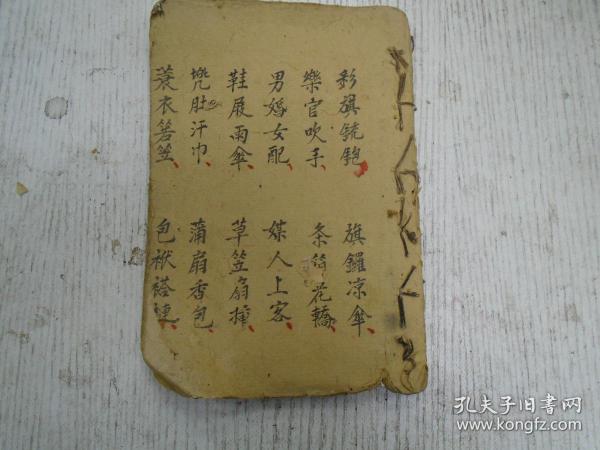 彩旗銃鉋 旗鑼凉傘
樂官吹手 条 花轎
男婚女配 媒人上客
鞋屐雨傘 草笠扇
兜肚汗巾 蒲扇香包
蓑衣箬笠 包袱褡連
孔夫子旧书网
www.kongfz.com